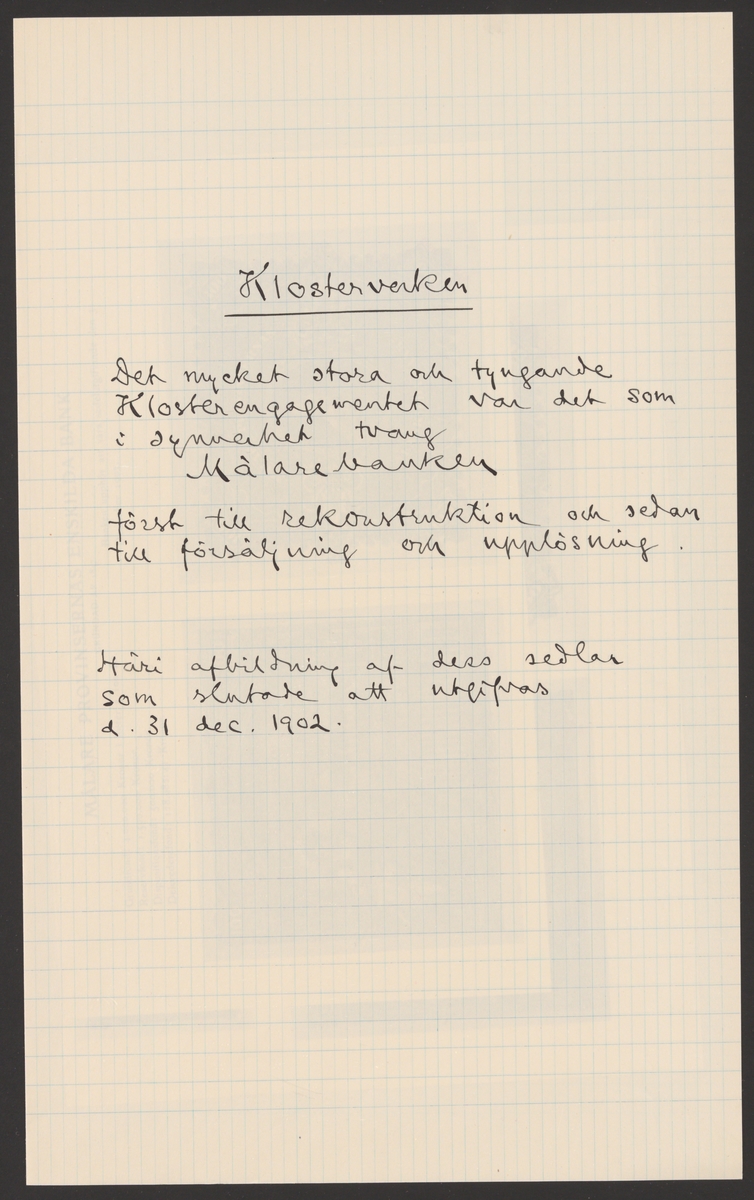 Klosterverken
Det mycket stora och tyngande
Klosterengagementet var det som
i synnerhet tvang
Mälarebanken
först till rekonstruktion och sedan
till försäljning och upplösning.
Häri afbildning af dess sedlar
som slutade att utgifvas
d. 31 dec. 1902.